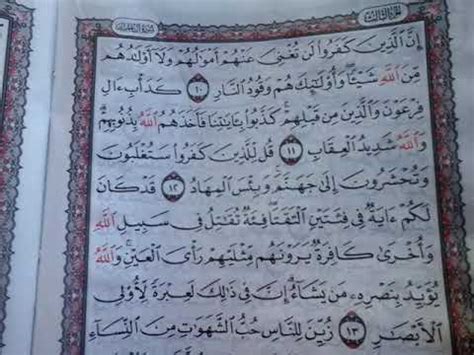 الجزء الثالث
سورة آل عمران
إِنَّ ٱلَّذِينَ كَفَرُوا۟ لَن تُغْنِىَ عَنْهُمْ أَمْوَٰلُهُمْ وَلَآ أَوْلَـٰدُهُم
مِّنَ ٱللَّهِ شَيْـًٔا ۖ وَأُو۟لَـٰٓئِكَ هُمْ وَقُودُ ٱلنَّارِ ١٠ كَدَأْبِ ءَالِ
فِرْعَوْنَ وَٱلَّذِينَ مِن قَبْلِهِمْ ۚ كَذَّبُوا۟ بِـَٔايَـٰتِنَا فَأَخَذَهُمُ ٱللَّهُ بِذُنُوبِهِمْ ۗ
وَٱللَّهُ شَدِيدُ ٱلْعِقَابِ ١١ قُل لِّلَّذِينَ كَفَرُوا۟ سَتُغْلَبُونَ
وَتُحْشَرُونَ إِلَىٰ جَهَنَّمَ ۚ وَبِئْسَ ٱلْمِهَادُ ١٢ قَدْ كَانَ
لَكُمْ ءَايَةٌ فِى فِئَتَيْنِ ٱلْتَقَتَا ۖ فِئَةٌ تُقَـٰتِلُ فِى سَبِيلِ ٱللَّهِ
وَأُخْرَىٰ كَافِرَةٌ يَرَوْنَهُم مِّثْلَيْهِمْ رَأْىَ ٱلْعَيْنِ ۚ وَٱللَّهُ
يُؤَيِّدُ بِنَصْرِهِۦ مَن يَشَآءُ ۗ إِنَّ فِى ذَٰلِكَ لَعِبْرَةً لِّأُو۟لِى
ٱلْأَبْصَـٰرِ ١٣ زُيِّنَ لِلنَّاسِ حُبُّ ٱلشَّهَوَٰتِ مِنَ ٱلنِّسَآءِ